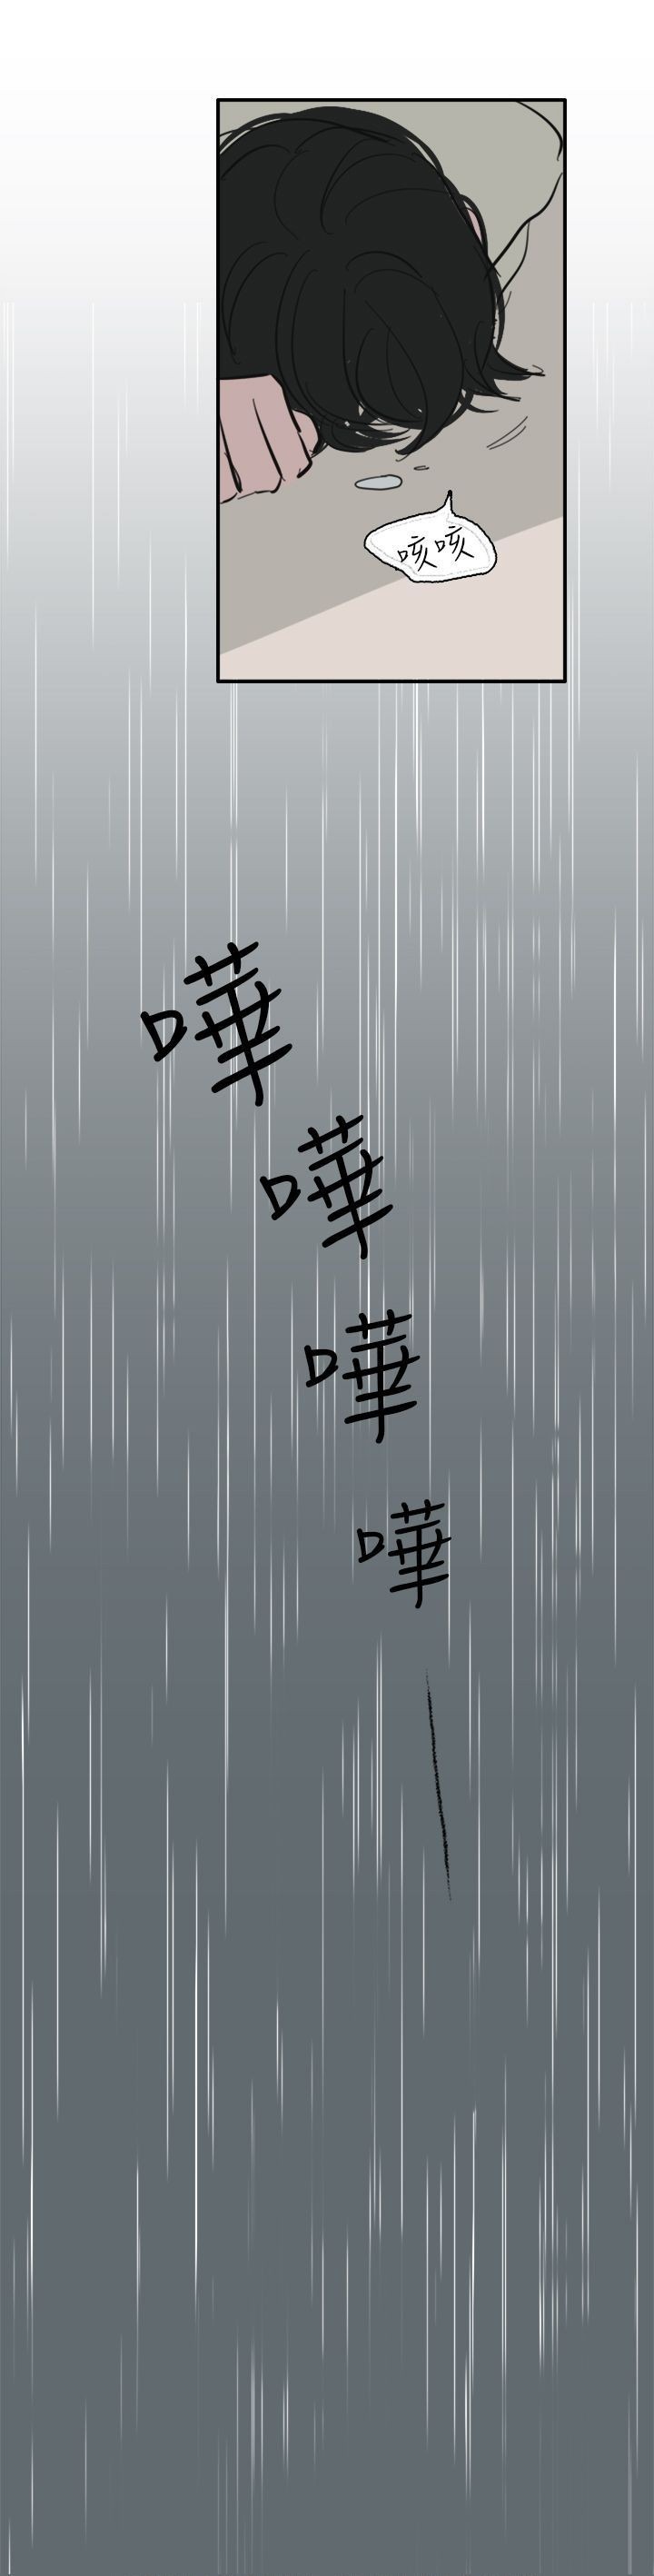 咳咳
嘩
嘩
嘩
嘩